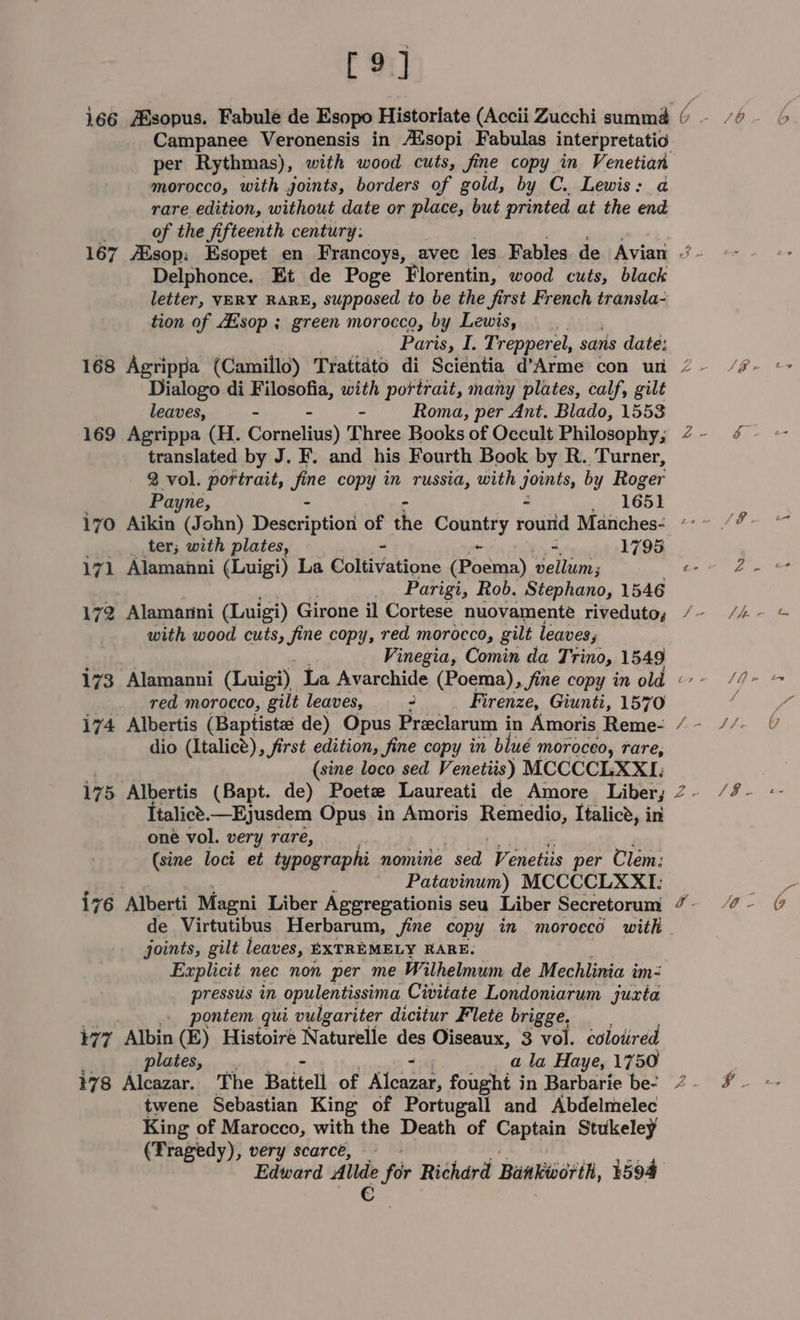 [ 9 ]
166 Æsopus. Fabule de Esopo Historiate (Accii Zucchi summâ 6 - 16 - 6
Campanee Veronensis in Æsopi Fabulas interpretatio
per Rythmas), with wood cuts, fine copy in Venetian
morocco, with joints, borders of gold, by C. Lewis: a
rare edition, without date or place, but printed at the end
of the fifteenth century.
167 Æsop. Esopet en Francoys, avec les Fables de Avian
Delphonce. Et de Poge Florentin, wood cuts, black
letter, VERY RARE, supposed to be the first French transla-
tion of Æsop ; green morocco, by Lewis,
Paris, I. Trepperel, sans date.
168 Agrippa (Camillo) Trattato di Scientia d'Arme con un 2 - 18 -
Dialogo di Filosofia, with portrait, many plates, calf, gilt
leaves, - - - Roma, per Ant. Blado, 1553
169 Agrippa (H. Cornelius) Three Books of Occult Philosophy, 2 - 6 -
translated by J. F. and his Fourth Book by R. Turner,
2 vol. portrait, fine copy in russia, with joints, by Roger
Payne, - - - 1651
170 Aikin (John) Description of the Country round Manches- 18 -
ter, with plates, - - - 1795
171 Alamanni (Luigi) La Coltivatione (Poema) vellum, 2 -
Parigi, Rob. Stephano, 1546
172 Alamanni (Luigi) Girone il Cortese nuovamente riveduto, 1 -
with wood cuts, fine copy, red morocco, gilt leaves,
Vinegia, Comin da Trino, 1549
173 Alamanni (Luigi) La Avarchide (Poema), fine copy in old 10 -
red morocco, gilt leaves, - Firenze, Giunti, 1570
174 Albertis (Baptistæ de) Opus Præclarum in Amoris Reme- 1 - 11 - 6
dio (Italicè), first edition, fine copy in blue morocco, rare,
(sine loco sed Venetiis) MCCCCLXXI.
175 Albertis (Bapt. de) Poetæ Laureati de Amore Liber, 2 - 18 -
Italicè.—Ejusdem Opus in Amoris Remedio, Italicè, in
one vol. very rare,
(sine loci et typographi nomine sed Venetiis per Clem.
Patavinum) MCCCCLXXI.
176 Alberti Magni Liber Aggregationis seu Liber Secretorum 10 - 6
de Virtutibus Herbarum, fine copy in morocco with
joints, gilt leaves, EXTREMELY RARE.
Explicit nec non per me Wilhelmum de Mechlinia im-
pressus in opulentissima Civitate Londoniarum juxta
pontem qui vulgariter dicitur Flete brigge.
177 Albin (E) Histoire Naturelle des Oiseaux, 3 vol. coloured
plates, - - a la Haye, 1750
178 Alcazar. The Battell of Alcazar, fought in Barbarie be- 2 - 8 -
twene Sebastian King of Portugall and Abdelmelec
King of Marocco, with the Death of Captain Stukeley
(Tragedy), very scarce,
Edward Allde for Richard Bankworth, 1594
C